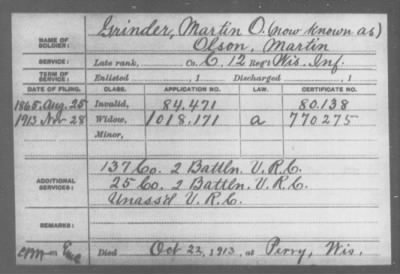 NAME OF SOLDIER: Grinder, Martin O. (now known as)
Olson, Martin
SERVICE: Late rank, Co. C, 12 Reg't Wis. Inf.
TERM OF SERVICE: Enlisted , 1 Discharged , 1
DATE OF FILING. CLASS. APPLICATION NO. LAW. CERTIFICATE NO.
1865. Aug. 25 Invalid, 84.471 80.138
1913 Nov 28 Widow, 1018.171 a 770275
Minor,
ADDITIONAL SERVICES: 137 Co. 2 Battln. V.R.C.
25 Co. 2 Battln. V.R.C.
Unass'd V.R.C.
REMARKS:
Died Oct 22, 1913, at Perry, Wis.